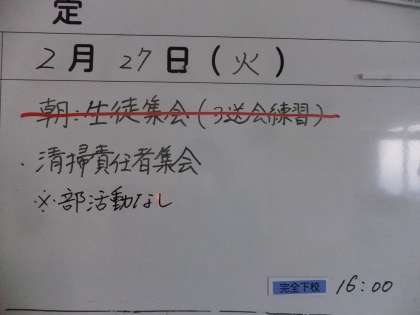 定
2月27日(火)
朝:生徒集会(3送会練習)
・清掃責任者集会
※部活動なし
完全下校 16:00